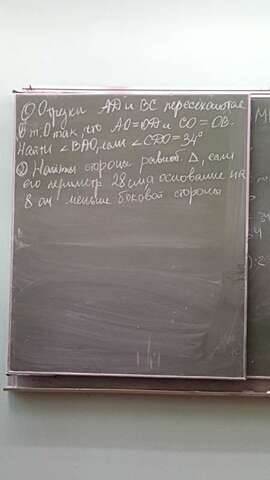 ① Отрезки AD и BC пересекаются
в т. O так, что AO=OD и CO=OB.
Найти ∠BAO, если ∠CDO=34°
② Найти стороны равноб. Δ, если
его периметр 28 см, а основание на
8 см меньше боковой стороны